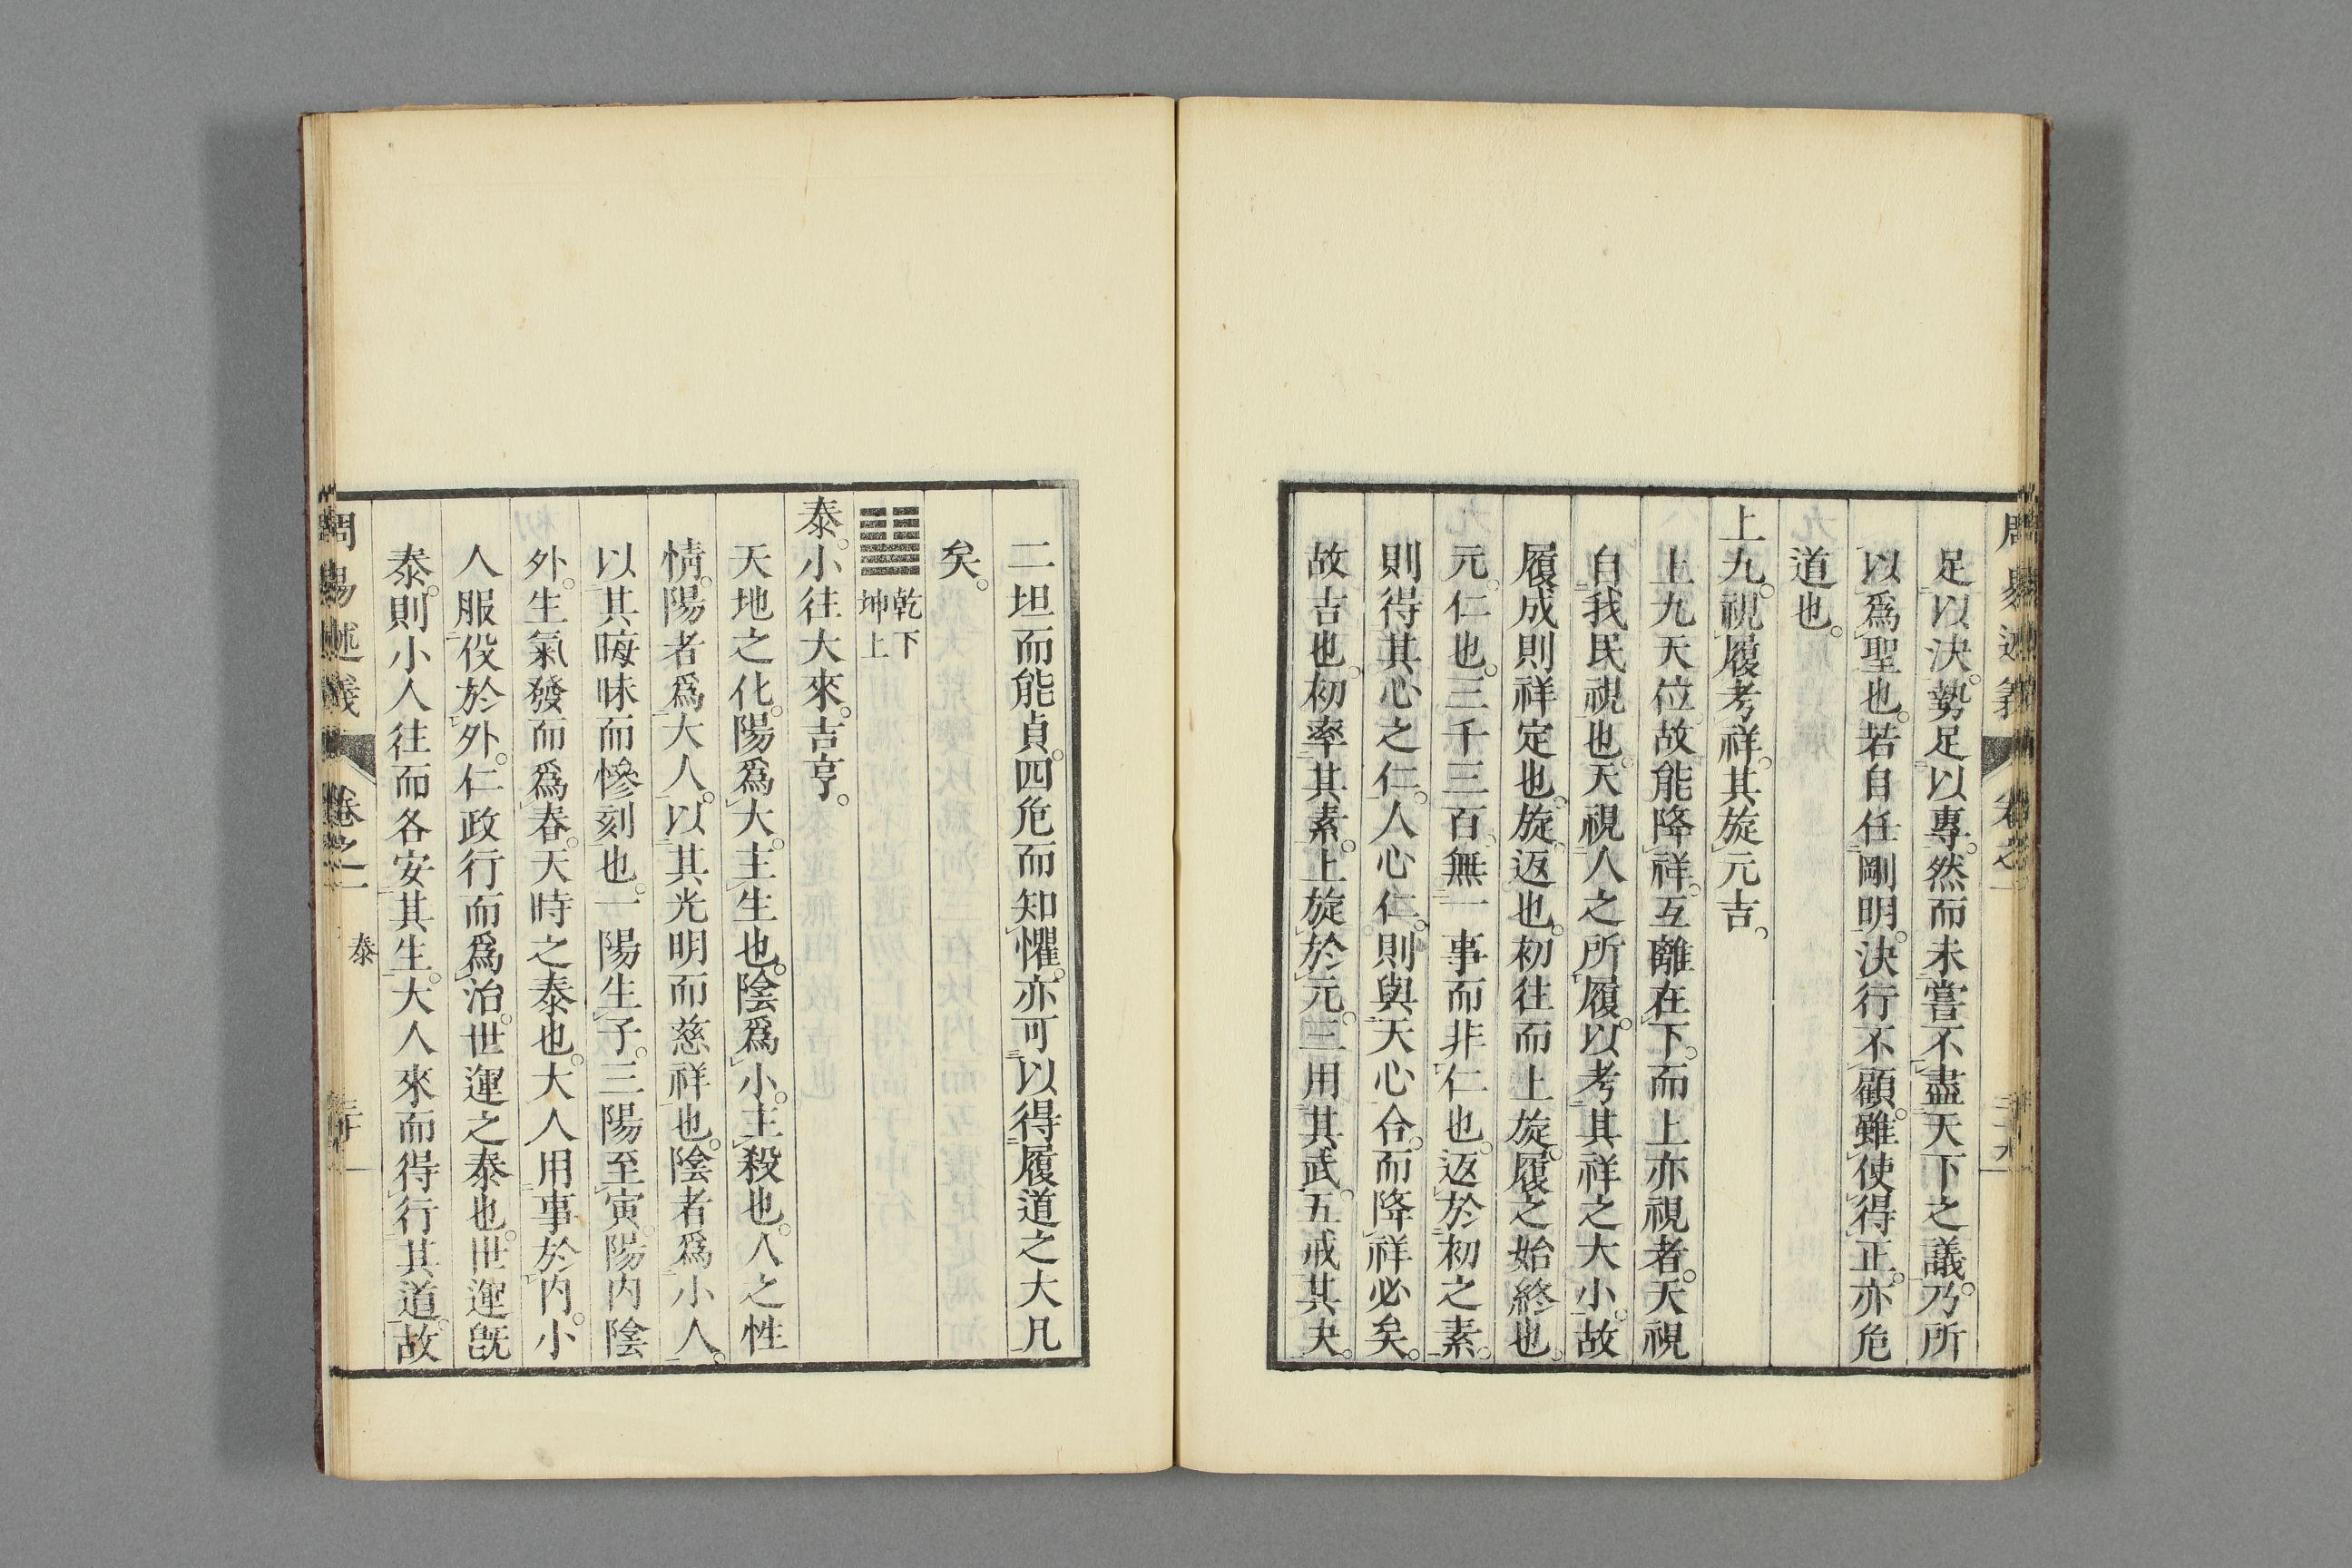 足以決。勢足以專。然而未嘗不盡天下之議。乃所
以爲聖也。若自任剛明。決行不顧。雖使得正。亦危
道也。
上九。視履考祥。其旋元吉。
上九天位。故能降祥。互離在下。而上亦視者。天視
自我民視也。天視人之所履。以考其祥之大小。故
履成則祥定也。旋。返也。初往而上旋。履之始終也。
元。仁也。三千三百。無一事而非仁也。返於初之素。
則得其心之仁。人心仁。則與天心合。而降祥必矣。
故吉也。初率其素。上旋於元。三用其武。五戒其夬。
二坦而能貞。四危而知懼。亦可以得履道之大凡
矣。
䷊ 乾下
坤上
泰。小往大來。吉亨。
天地之化。陽爲大。主生也。陰爲小。主殺也。人之性
情。陽者爲大人。以其光明而慈祥也。陰者爲小人。
以其晦昧而慘刻也。一陽生子。三陽至寅。陽内陰
外。生氣發而爲春。天時之泰也。大人用事於内。小
人服役於外。仁政行而爲治。世運之泰也。世運旣
泰。則小人往而各安其生。大人來而得行其道。故
周易述義 卷之一 泰